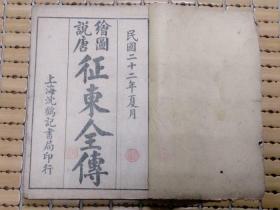 民國二十二年夏月
繪圖
說唐
征東全傳
上海沈鶴記書局印行